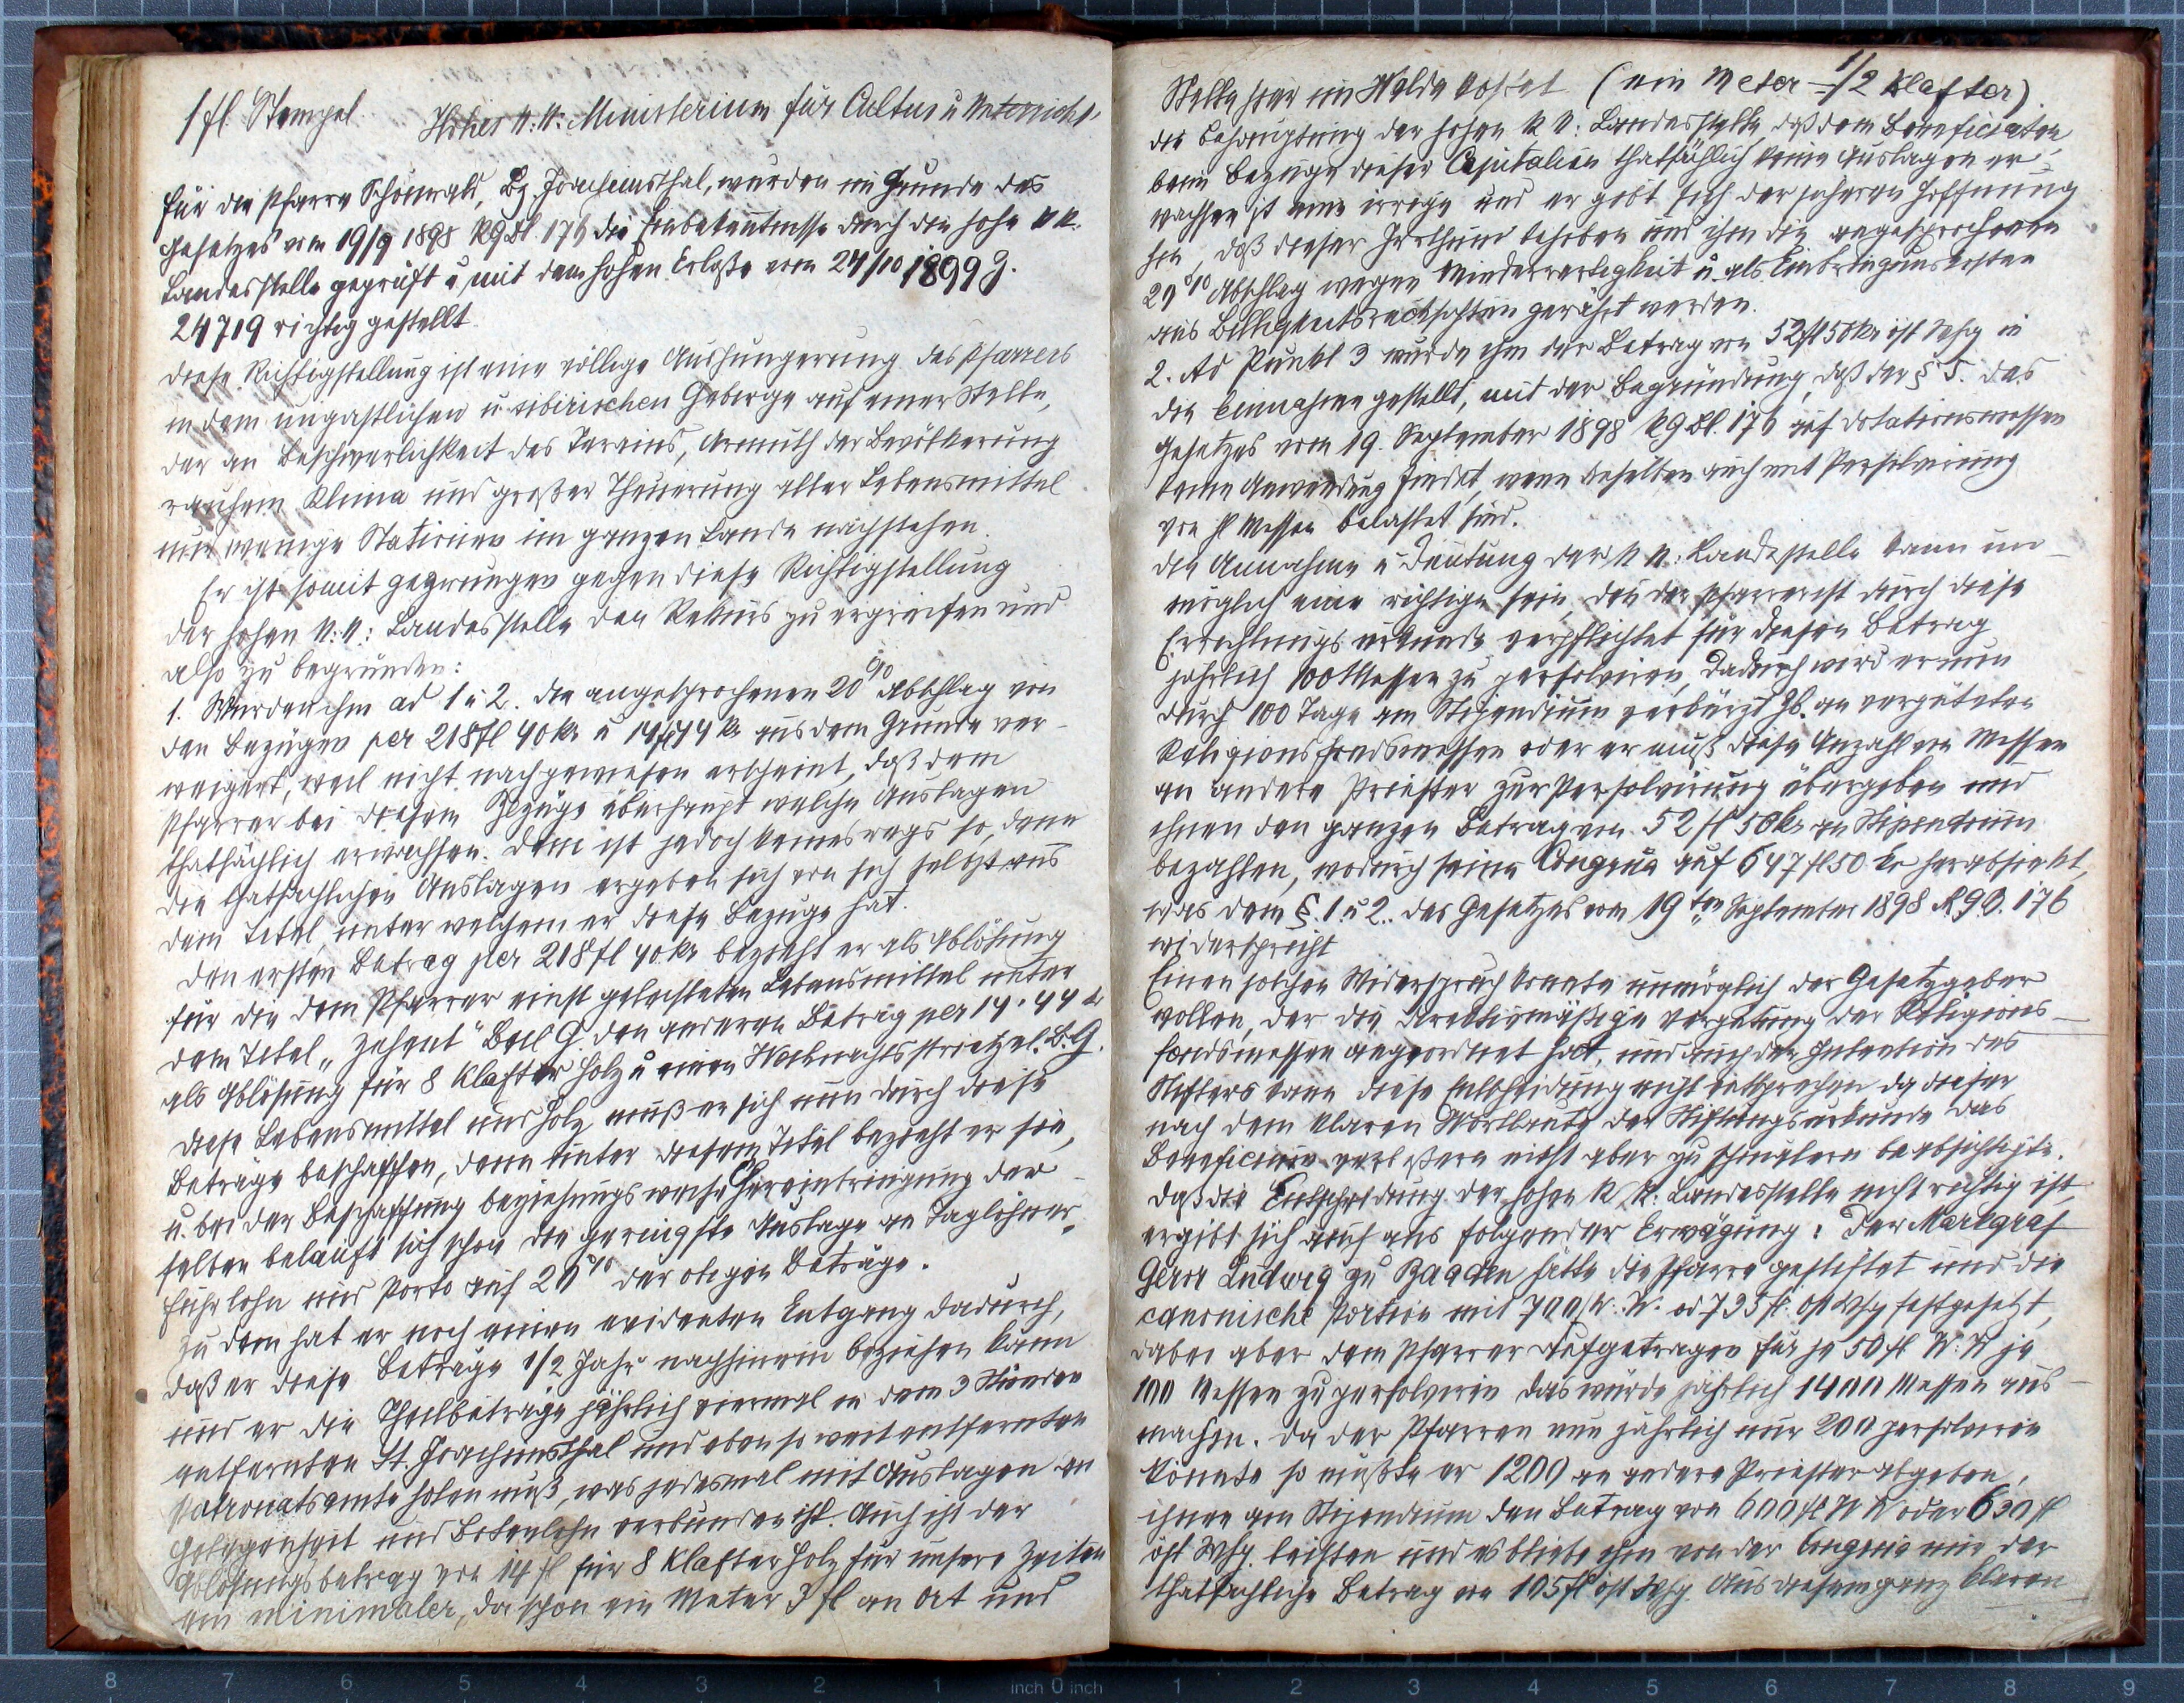 1 fl. Stempel
Hohes k. k. Ministerium für Cultus u Unterricht.
Für die Pfarre Schönwald, Bz Joachimsthal, wurden im Grunde des
Gesetzes vom 19/9 1898 RGBl. 176 die Einbekentnisse durch die hohe k k.
Landesstelle geprüft u. mit dem hohen Erlaße vom 24/10 1899 Z.
24719 richtig gestellt.
Diese Richtigstellung ist eine völlige Aushungerung des Pfarrers
in dem ungastlichen u. sibirischen Gebirge auf einer Stelle,
der an Beschwerlichkeit des Terains, Armuth der Bevölkerung
rauhem Klima und großer Theuerung aller Lebensmittel
nur wenige Stationen im ganzen Lande nachstehen.
Er ist somit gezwungen gegen diese Richtigstellung
der hohen k. k: Landesstelle den Rekurs zu ergreifen und
also zu begründen:
1. Wurden ihm ad 1 u 2. die angesprochenen 20% Abschlag von
den Bezügen per 218 fl 40 kr u 14 fl 14 kr aus dem Grunde ver-
weigert, weil nicht nachgewiesen erscheint, daß dem
Pfarrer bei diesem Bezuge überhaupt welche Auslagen
thatsächlich erwachsen. Dem ist jedoch keineswegs so, denn
die thatsächlichen Auslagen ergeben sich von sich selbst aus
dem Titel, unter welchem er diese Bezüge hat.
Den ersten Betrag per 218 fl 40 kr bezieht er als Ablösung
für die dem Pfarrer einst geleisteten Lebensmittel unter
dem Titel „Zehent" Beil G. den anderen Betrag per 14 · 44 kr
als Ablösung für 8 Klafter Holz u einen Weihnachtsstrietzel. B. G.
Diese Lebensmittel und Holz muß er sich nun durch diese
Beträge beschaffen, denn unter diesem Titel bezieht er sie,
u. bei der Beschaffung beziehungsweise Hereinbringung der-
selben belauft sich schon die geringste Auslage an Taglöhner,
Fuhrlohn und Porto auf 20% der obigen Beträge.
Zu dem hat er noch einen evidenten Entgang dadurch,
daß er diese Beträge 1/2 Jahr nachhinein beziehen kann
und er die Theilbeträge jährlich viermal in dem 3 Stunden
entfernten St. Joachimsthal und eben so weit entfernten
Patronatsamte holen muß, was jedesmal mit Auslagen an
Gelegenheit und Botenlohn verbunden ist. Auch ist der
Ablösungsbetrag von 14 fl für 8 Klafter Holz für unsere Zeiten
ein minimaler, da schon ein Meter 3 fl an Ort und
Stelle hier im Walde kostet (ein Meter = 1/2 Klafter).
Die Behauptung der hohen k k: Landesstelle, daß dem Beneficiaten
beim Bezuge dieser Capitalien thatsächlich keine Auslagen er-
wachsen ist eine irrige und er gibt sich der sicheren Hoffnung
hin, daß dieser Irrthum behoben und ihm die angesprochenen
20% Abschlag wegen Minderwertigkeit u. als Einbringungskosten
aus Billigkeitsrücksichten gewährt werden.
2. Ad Punkt 3 wurde ihm der Betrag von 52 fl 50 kr öst Whg in
die Einnahme gestellt, mit der Begründung, daß der § 5. des
Gesetzes vom 19. September 1898 RGBl. 176 auf Dotationsmessen
keine Anwendung findet, wenn dieselben auch mit Persolvirung
von hl Messen belastet sind.
Die Annahme u Deutung der k k: Landesstelle kann un-
möglich eine richtige sein, denn der Pfarrer ist durch diese
Errichtungsurkunde verpflichtet für diesen Betrag
jährlich 100 Messen zu persolviren, dadurch wird er nun
durch 100 Tage am Stipendium verkürzt Zb. an vergüteten
Religionsfondsmessen oder er muß diese Anzahl von Messen
an andere Priester zur Persolvirung übergeben und
ihnen den ganzen Betrag von 52 fl 50 kr an Stipendium
bezahlen, wodurch seine Congrua auf 647 fl 50 kr herabsinkt,
was dem §. 1. u 2. des Gesetzes vom 19ten September 1898 RGB. 176
widerspricht
Einen solchen Widerspruch konnte unmöglich der Gesetzgeber
wollen, der die direktivmäßige Vergütung der Religions-
fondsmessen angeordnet hat, und auch der Intention des
Stifters kann diese Entscheidung nicht entsprechen da dieser
nach dem klaren Wortlaute der Stiftungsurkunde das
Beneficium verbeßern nicht aber zu schmälern beabsichtigte.
Daß die Entscheidung der hohen k k: Landesstelle nicht richtig ist,
ergibt sich auch aus folgender Erwägung: Der Markgraf
Georg Ludwig zu Baaden hätte die Pfarre gestiftet und die
canonische Portion mit 700 fl W. W. od 735 fl. öst Whg festgesetzt,
dabei aber dem Pfarrer aufgetragen für je 50 fl W. W je
100 Messen zu persolviren das würde jährlich 1400 Messen aus-
machen. Da der Pfarrer nun jährlich nur 200 persolviren
könnte so müßte er 1200 an andere Priester abgeben,
ihnen am Stipendium den Betrag von 600 fl W W oder 630 fl
öst Whg. leisten und es bliebe ihm von der Congrua nur der
thatsächliche Betrag von 105 fl öst Whg. Aus diesem ganz klaren